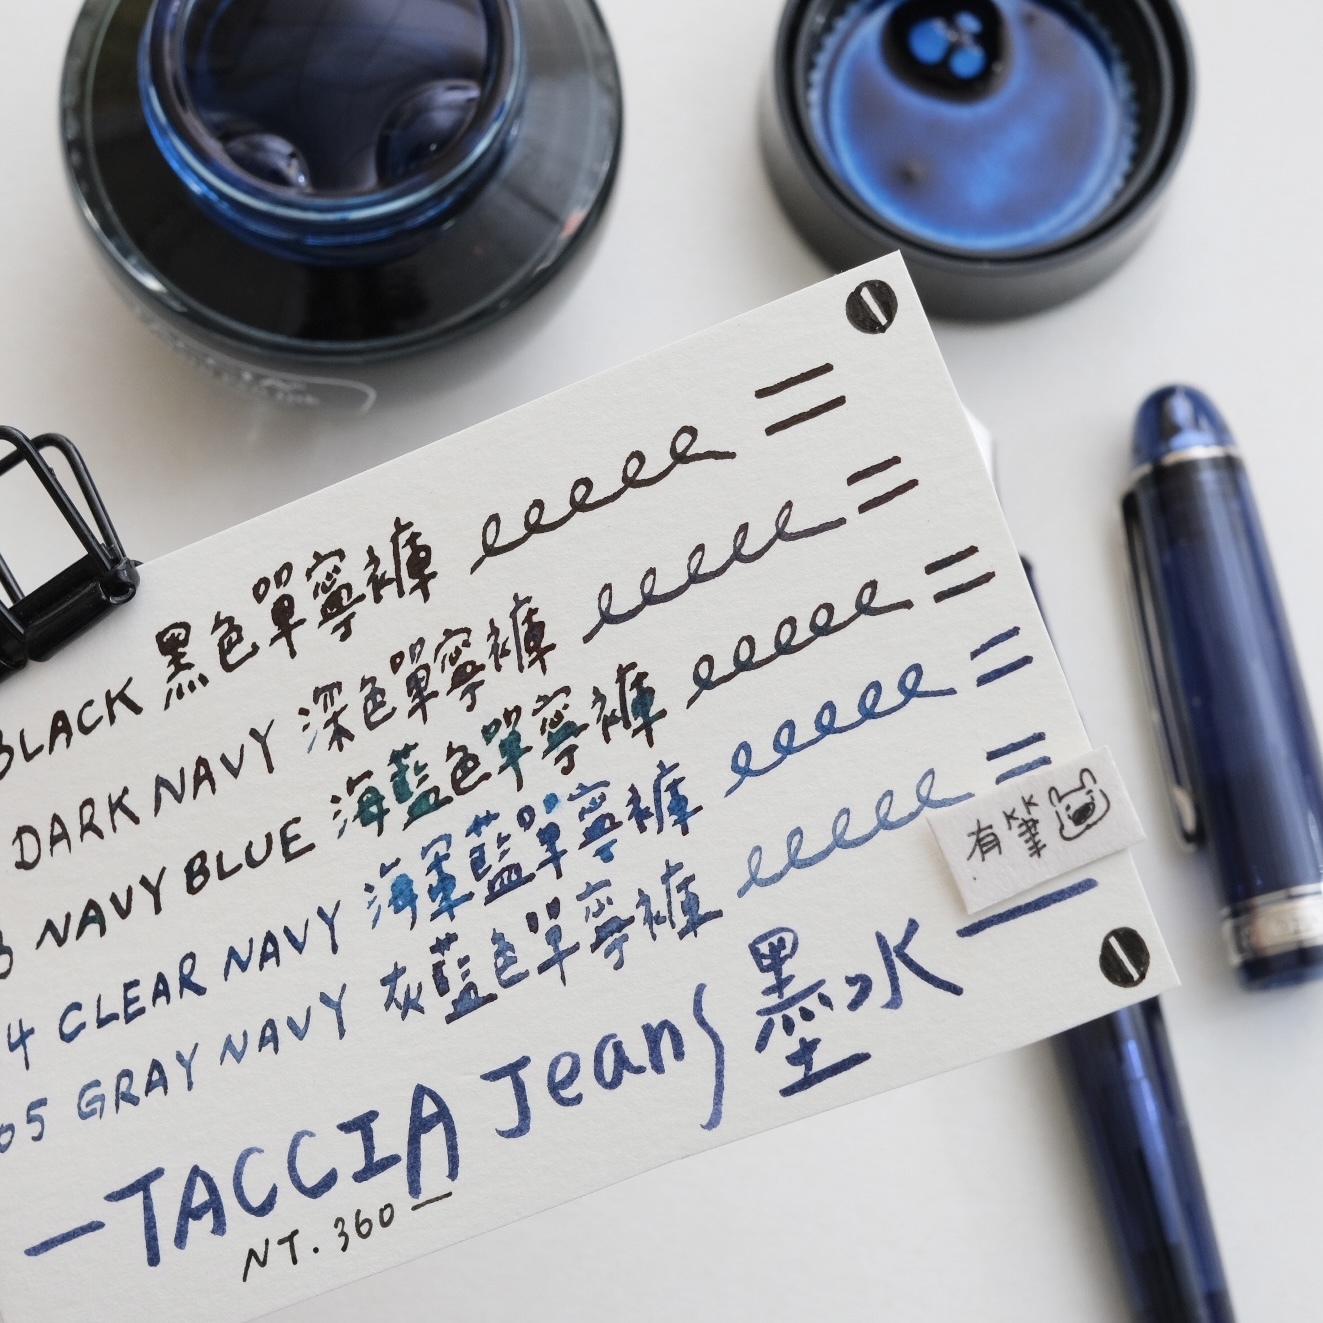 BLACK 黑色單寧褲
DARK NAVY 深色單寧褲
3 NAVY BLUE 海藍色單寧褲
4 CLEAR NAVY 海軍藍單寧褲
05 GRAY NAVY 灰藍色單寧褲
有筆
—TACCIA Jeans墨水—
NT. 360—